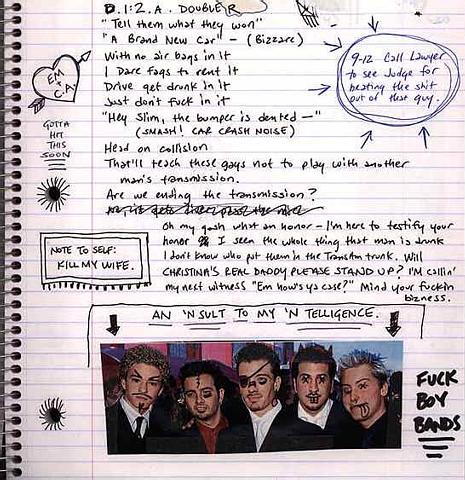 D.1.2.A. DOUBLE R
"Tell them what they won"
"A Brand New Car" - (Bizzare)
With no air bags in it
I Dare fags to rent it
Drive get drunk in it
Just don't fuck in it
"Hey Slim, the bumper is dented -"
(SMASH! CAR CRASH NOISE)
Head on collision
That'll teach these gays not to play with another
man's transmission.
Are we ending the transmission?
Oh my gosh what an honor - I'm here to testify your
honor I seen the whole thing that man is drunk
I don't know who put them in the TransAm trunk. Will
CHRISTINA'S REAL DADDY PLEASE STAND UP? I'M callin'
my next witness "Em how's ya case?" Mind your fuckin
bizness.
EM
+
C.A.
GOTTA
HIT
THIS
SOON
9-12 Call Lawyer
to see Judge for
beating the shit
out of that guy.
NOTE TO SELF:
KILL MY WIFE.
AN 'N SULT TO MY 'N TELLIGENCE.
FUCK
BOY
BANDS